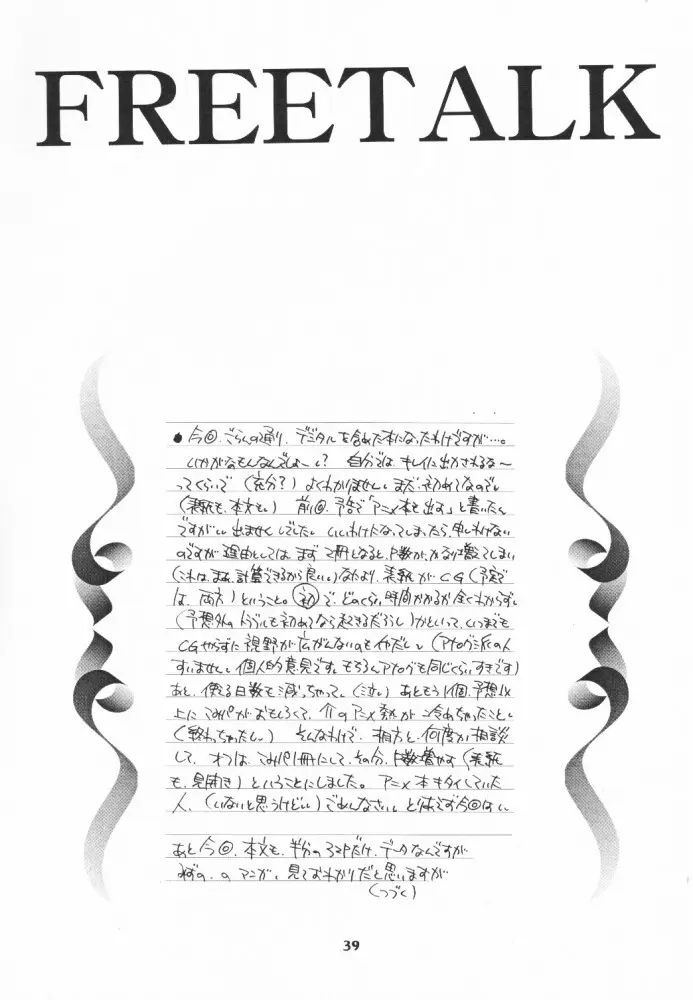 FREETALK
●今回、ごらんの通り、デジタルを含めた本になったわけですが…。
いかがなもんなんでしょーい? 自分では キレイに出かされるな〜
ってくらいで (充分?) よくわかりません。まだ初めてなので。
(表紙も、本文も。) 前回、予告で「アニメ本を出す」と書いたん
ですが… 出ませんでした。いいわけになってしまったら、申しわけない
のですが 理由としては まず 2冊になると 数が、かなり増えてしまい
(これは、まあ、計算できるから良い。) なにより、表紙が CG (予定で
は、両方) ということ。初で、どのくらい時間かかるか全くわからず。
(予想外のトラブルも初めてなら起きるだろうし) かといって、いつまでも
CGやらずに視野が広がんないのもイヤだし。(アナログ派の人
すいません。個人的意見です。もちろんアナログも同じくらいすきです)
あと、使える日数も減っちゃって。(泣) あともう1個、予想以
上に こみパがおもしろくて、 のアニメ熱が 冷めちゃったこと。
(終わっちゃったし。) そんなわけで、相方と、何度か相談
して、 こみパ1冊にして、その分、 数増やす (表紙
も、見開き) ということにしました。アニメ本 キタイしていた
人、(いないと思うけどい) ごめんなさい。とりあえず今回は
あと 今回、本文も、半分の だけ、データなんですが
の マンガ。見ておわかりだと思いますが
(つづく)
39